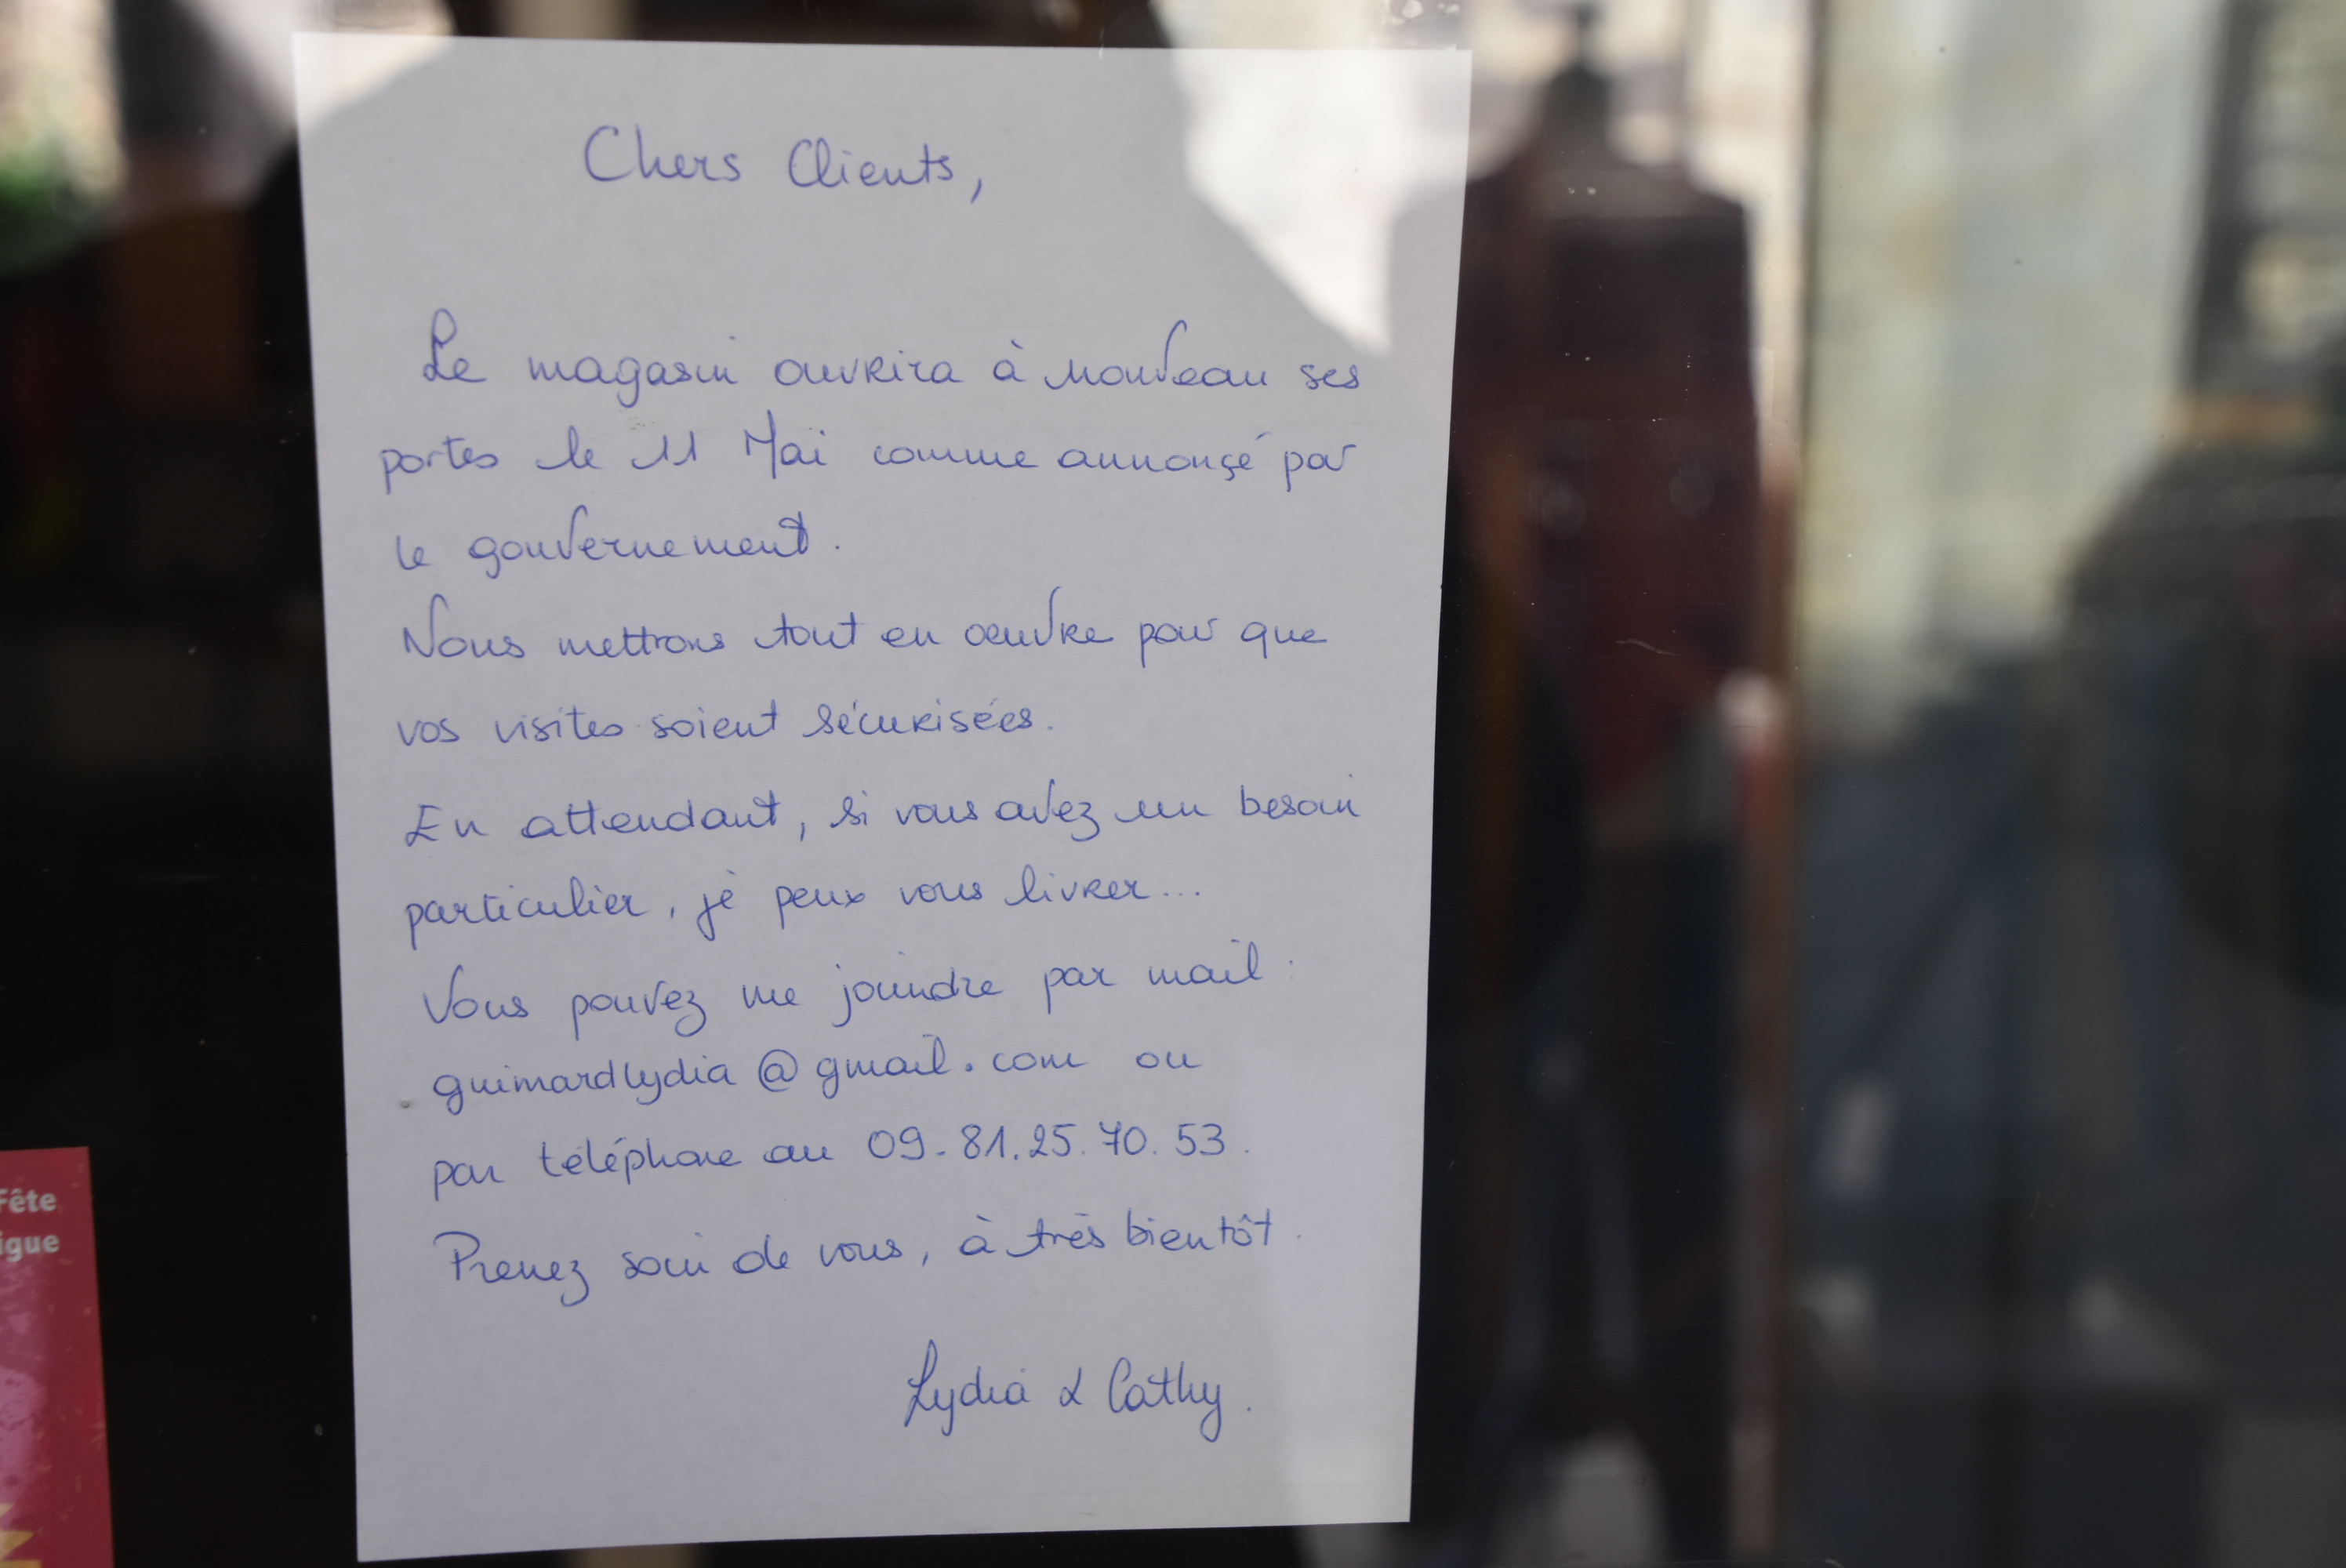 Chers Clients,
Le magasin ouvrira à nouveau ses
portes le 11 Mai comme annonçé par
le gouvernement.
Nous mettrons tout en oeuvre pour que
vos visites soient sécurisées.
En attendant, si vous avez un besoin
particulier, je peux vous livrer...
Vous pouvez me joindre par mail :
guimardlydia@gmail.com ou
par téléphone au 09.81.25.70.53.
Prenez soin de vous, à très bientôt.
Lydia & Cathy.
Fête
igue